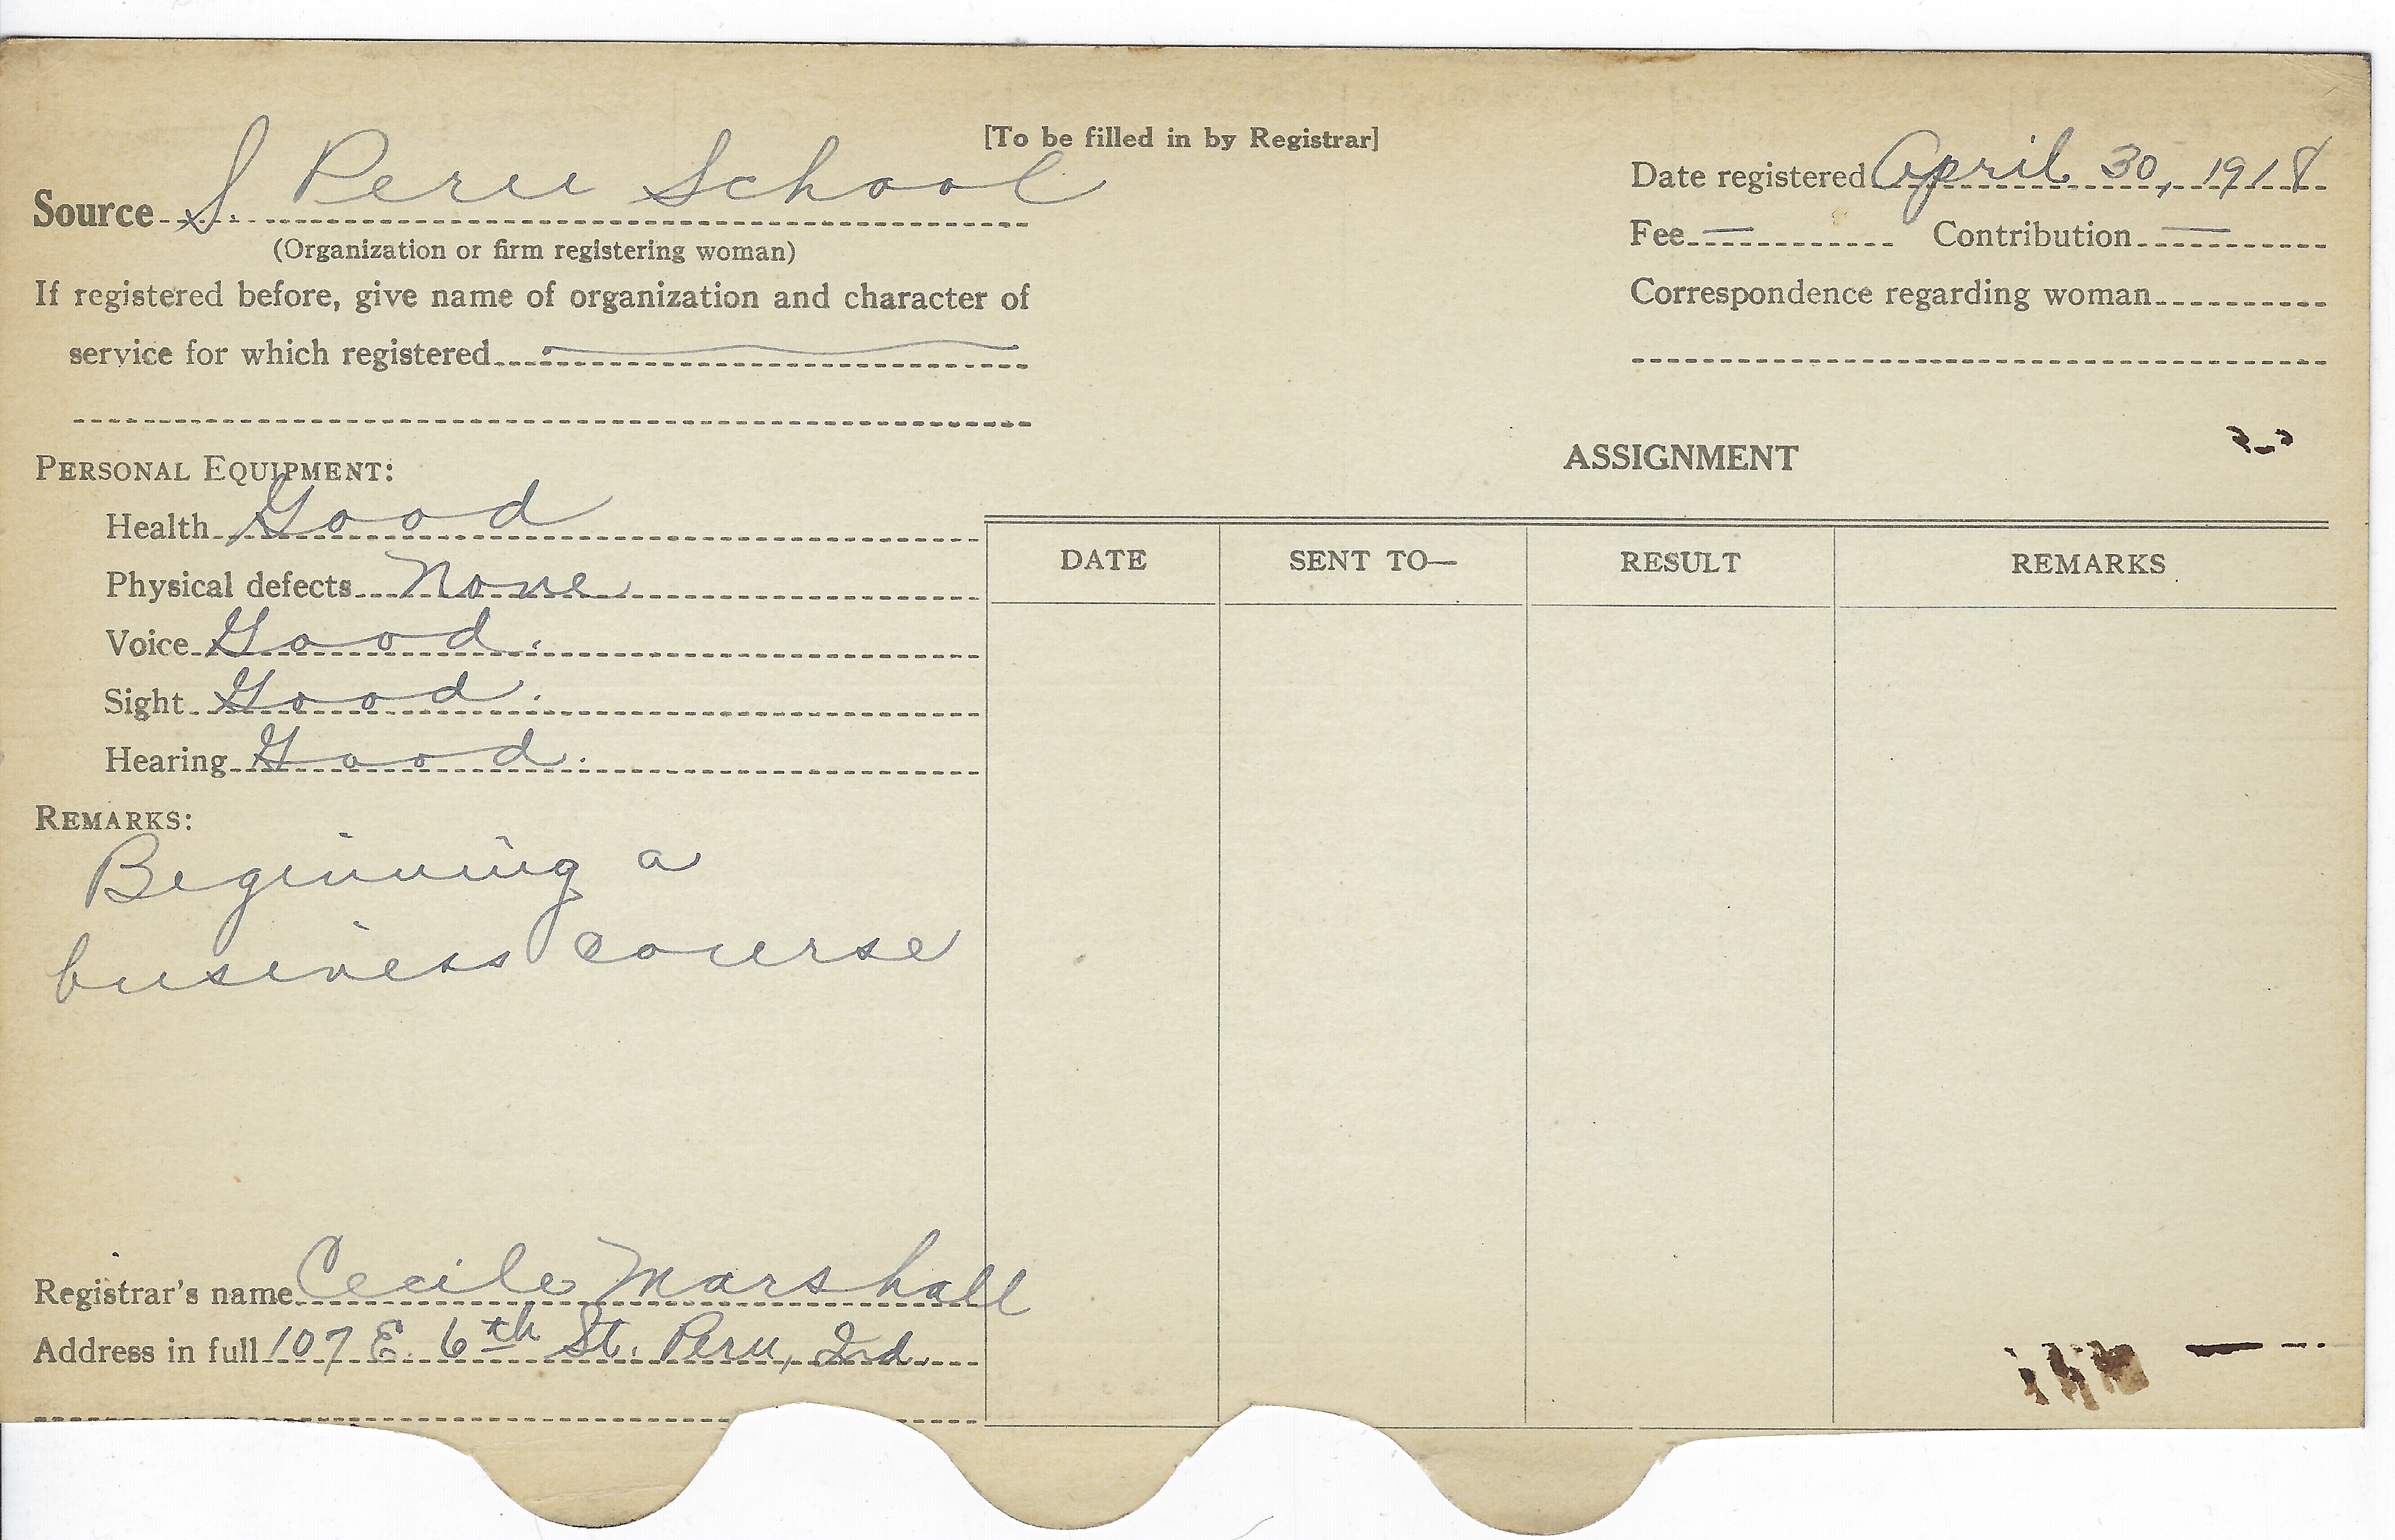 [To be filled in by Registrar]
Source S. Peru School
(Organization or firm registering woman)
If registered before, give name of organization and character of
service for which registered
Date registered April 30, 1918
Fee — Contribution —
Correspondence regarding woman
PERSONAL EQUIPMENT:
Health Good
Physical defects None
Voice Good.
Sight Good.
Hearing Good.
REMARKS:
Beginning a
business course
Registrar's name Cecile Marshall
Address in full 107 E. 6th St. Peru, Ind.
ASSIGNMENT
DATE SENT TO— RESULT REMARKS